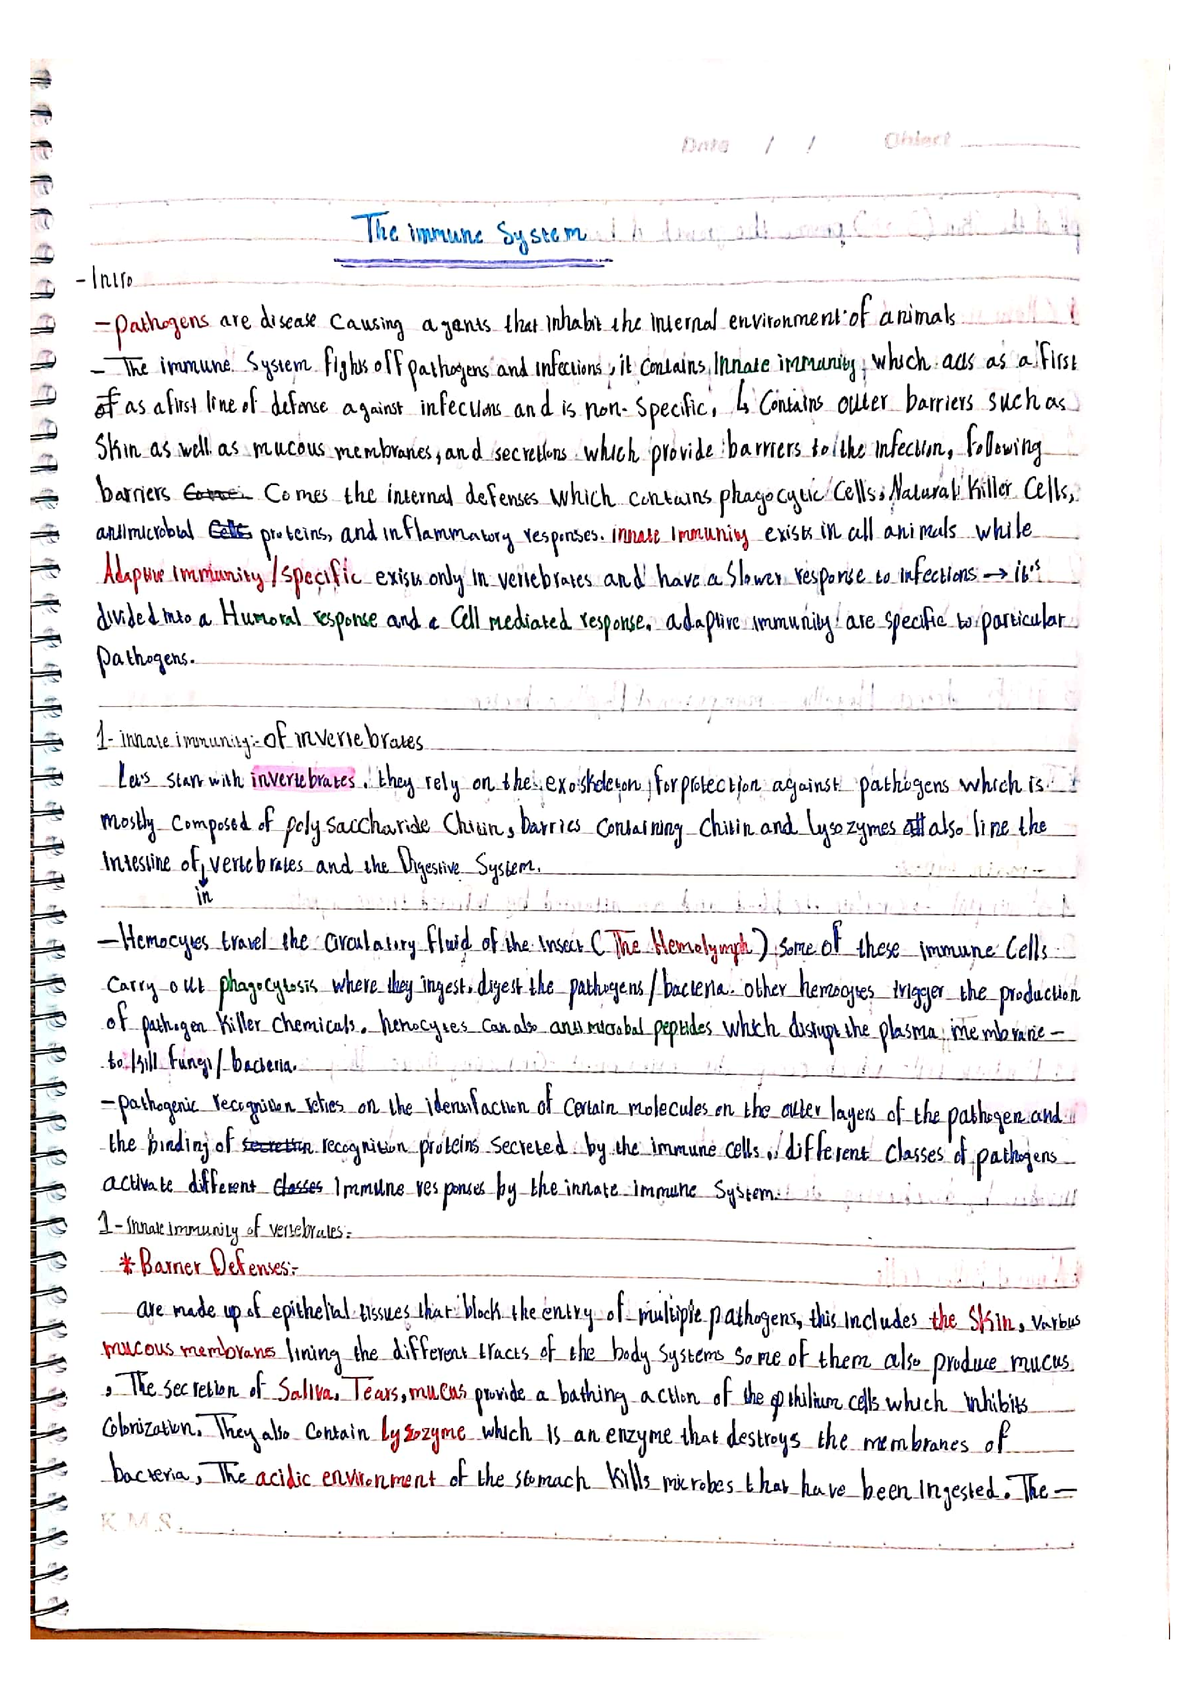 Date / / Object
The immune System
- Intro
- pathogens are disease causing agents that inhabit the internal environment of animals
- The immune System fights off pathogens and infections, it contains Innate immunity, which acts as a first
as a first line of defense against infections and is non-specific, ↳ Contains outer barriers such as
Skin as well as mucous membranes, and secretions which provide barriers to the infection, following
barriers Comes the internal defenses which contains phagocytic Cells, Natural Killer Cells,
antimicrobial proteins, and inflammatory responses. innate Immunity exists in all animals while
Adaptive immunity / specific exists only in vertebrates and have a slower response to infections → it's
divided into a Humoral response and a Cell mediated response. adaptive immunity are specific to particular
pathogens.
1- innate immunity:- of invertebrates
Lets start with invertebrates. they rely on the exoskeleton for protection against pathogens which is
mostly composed of polysaccharide Chitin, barries Containing Chitin and lysozymes also line the
intestine of vertebrates and the Digestive System.
in
- Hemocytes travel the circulatory fluid of the insect (The Hemolymph) some of these immune Cells
Carry out phagocytosis where they ingest, digest the pathogens / bacteria. other hemocytes trigger the production
of pathogen killer chemicals. hemocytes can also antimicrobal peptides which distrupt the plasma membrane -
to kill fungi / bacteria.
- pathogenic recognition relies on the identifaction of certain molecules on the outer layers of the pathogen and
the binding of recognition proteins secreted by the immune cells, different classes of pathogens
activate different immune responses by the innate immune System.
1- Innate immunity of vertebrates:-
* Barrier Defenses:-
are made up of epithelial tissues that block the entry of multiple pathogens, this includes the Skin, various
mucous membranes lining the different tracts of the body systems some of them also produce mucus
, The secretion of Saliva, Tears, mucus provide a bathing action of the epithilium cells which inhibits
Colonization. They also contain lysozyme which is an enzyme that destroys the membranes of
bacteria, The acidic environment of the stomach kills microbes that have been ingested. The -
K.M.S.